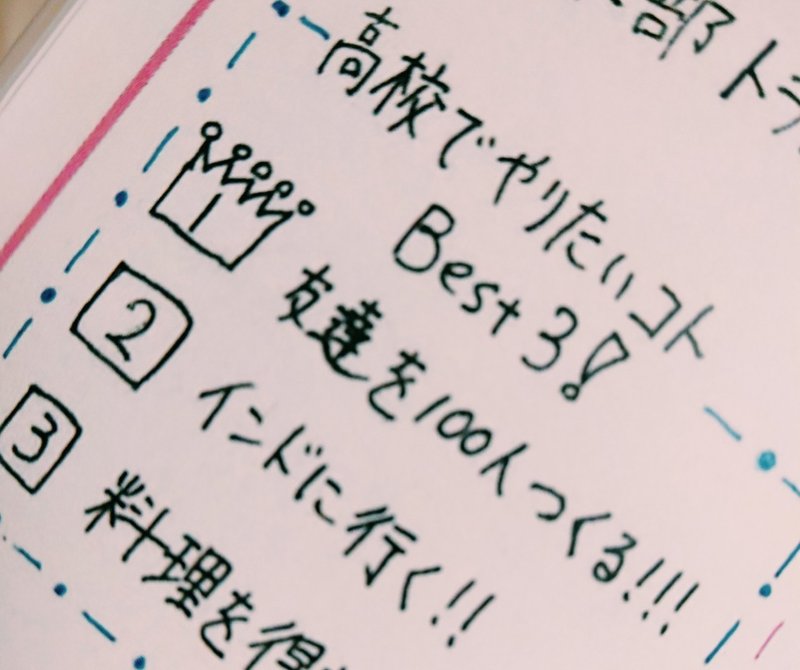 部トラ
高校でやりたいコト
Best 3!
1 友達を100人つくる!!!
2 インドに行く!!
3 料理を得